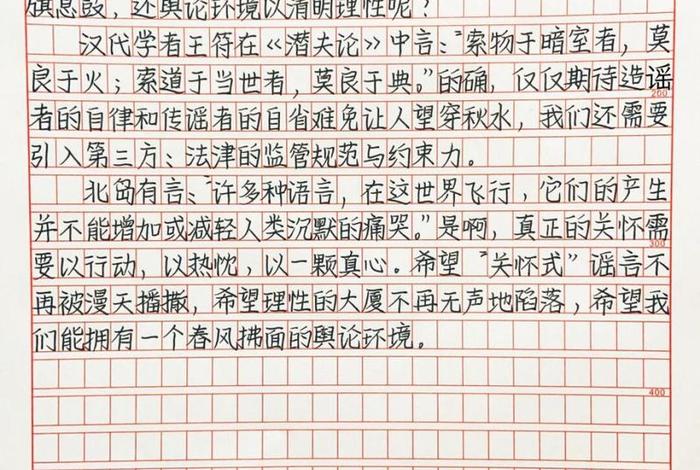 旗息鼓，还舆论环境以清明理性呢？
汉代学者王符在《潜夫论》中言：“索物于暗室者，莫
良于火；索道于当世者，莫良于典。”的确，仅仅期待造谣
200
者的自律和传谣者的自省难免让人望穿秋水，我们还需要
引入第三方：法律的监管规范与约束力。
北岛有言：“许多种语言，在这世界飞行，它们的产生
并不能增加或减轻人类沉默的痛哭。”是啊，真正的关怀需
300
要以行动，以热忱，以一颗真心。希望“关怀式”谣言不
再被漫天播撒，希望理性的大厦不再无声地陷落，希望我
们能拥有一个春风拂面的舆论环境。
400